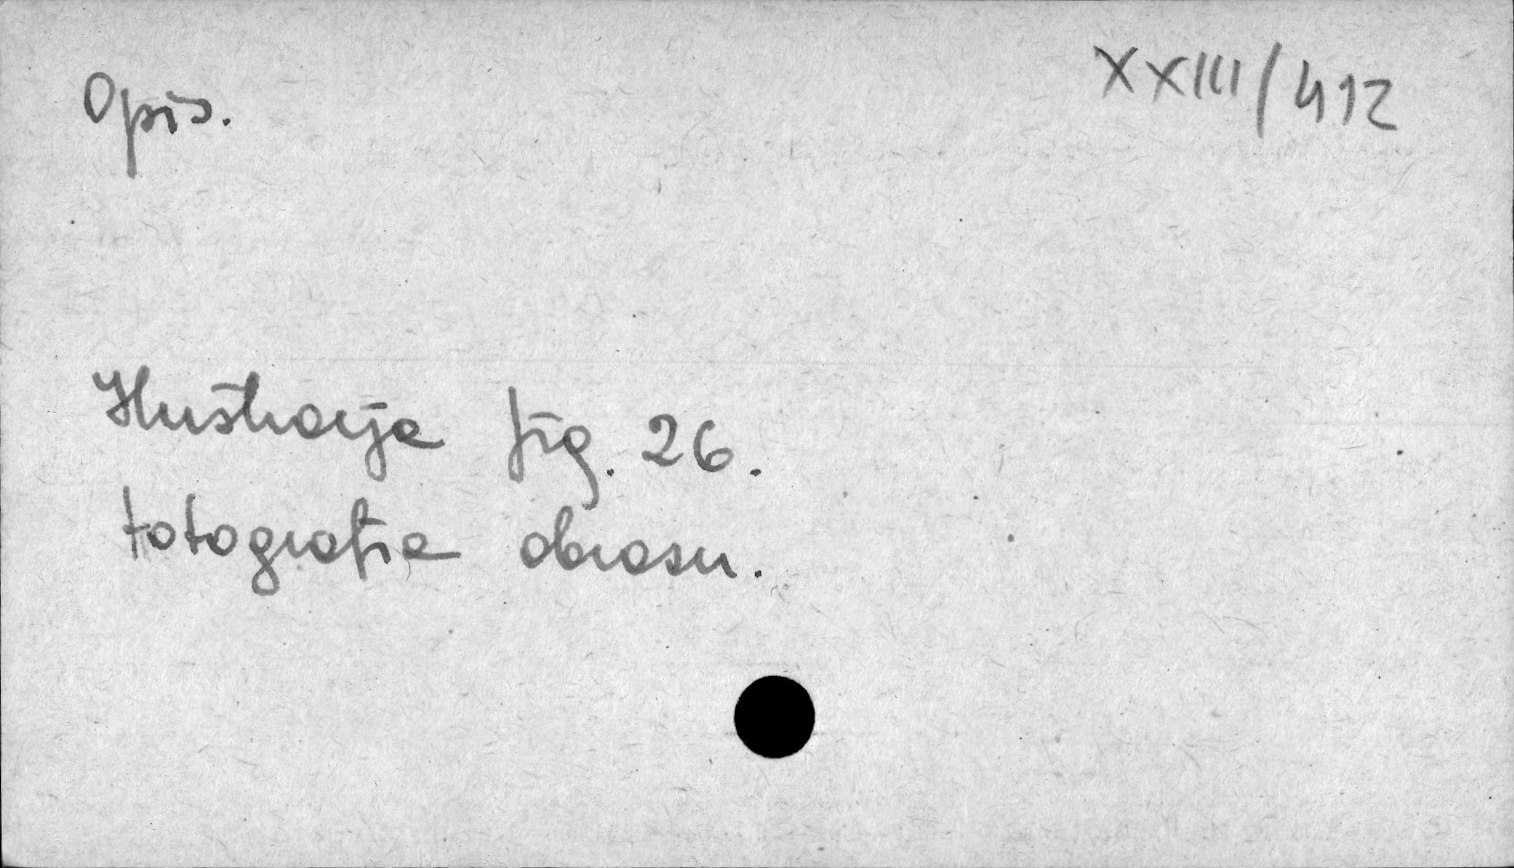 Opis.
XXIII/412
Ilustracja fig. 26.
fotografia obrazu.